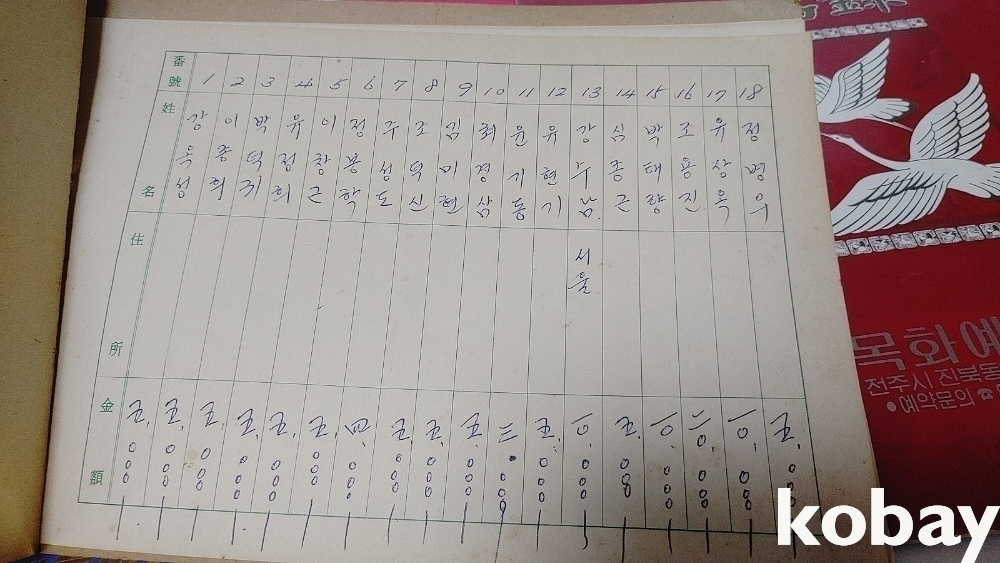 番號 1 2 3 4 5 6 7 8 9 10 11 12 13 14 15 16 17 18
姓名
강옥성
이종희
박덕귀
유정희
이창근
정봉학
주성도
조덕신
김미현
최경삼
윤기동
유현기
강수남
심종근
박태량
조용진
유상옥
정병우
住所
서울
金額
五,000
五,000
五,000
五,000
五,000
五,000
四,000
五,000
五,000
五,000
三,000
五,000
一0,000
五,000
一0,000
二0,000
一0,000
五,000
목화예
전주시 진북동
●예약문의 ☎
kobay